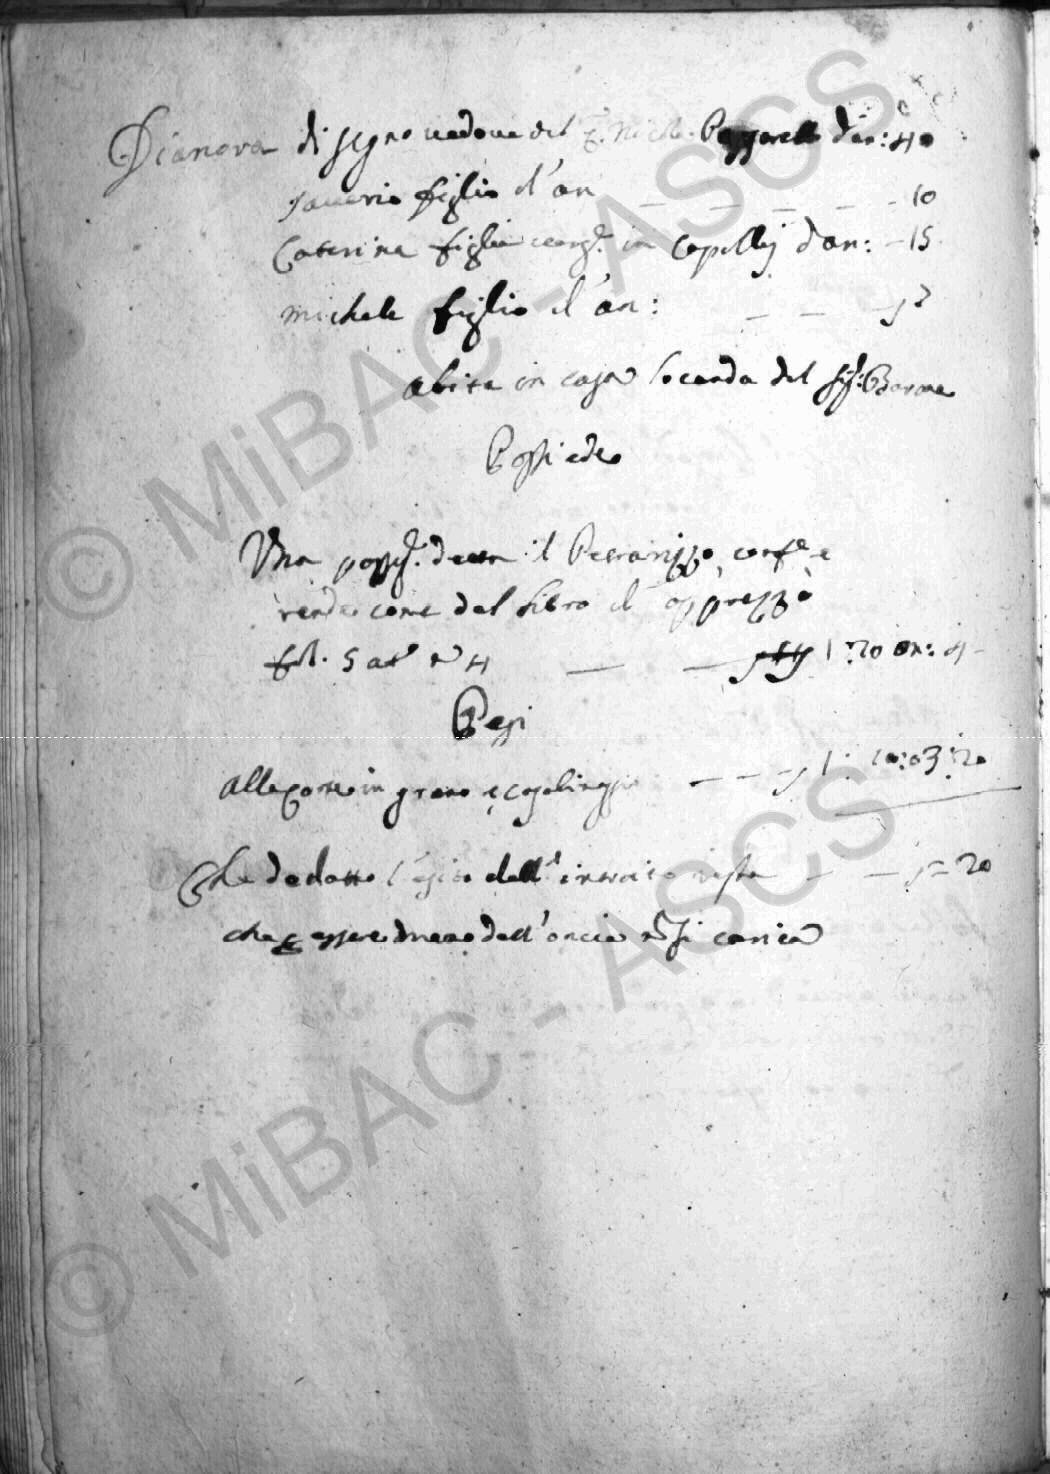 Dianova di segno vedova del q. Michele d'an: 40
Saverio figlio d'an — — — — - 10
Caterina figlia verg. in Capillij d'an: - 15
michele figlio d'an: — — —
abita in casa locanda del Sig.r Barone
Possiede
Una poss.e detta il Petrarizzo, conf.e e
rende come dal libro d'apprezzo
fol. 5 at.o n.o 4 — — 1:20 on: 4 -
Pesi
alla Corte in grano — — — 1:
Che dedotto l'esito dall' introito resta — — 20
che p essere meno dell'oncia non si carica
© MiBAC - ASCS
© MiBAC - ASCS